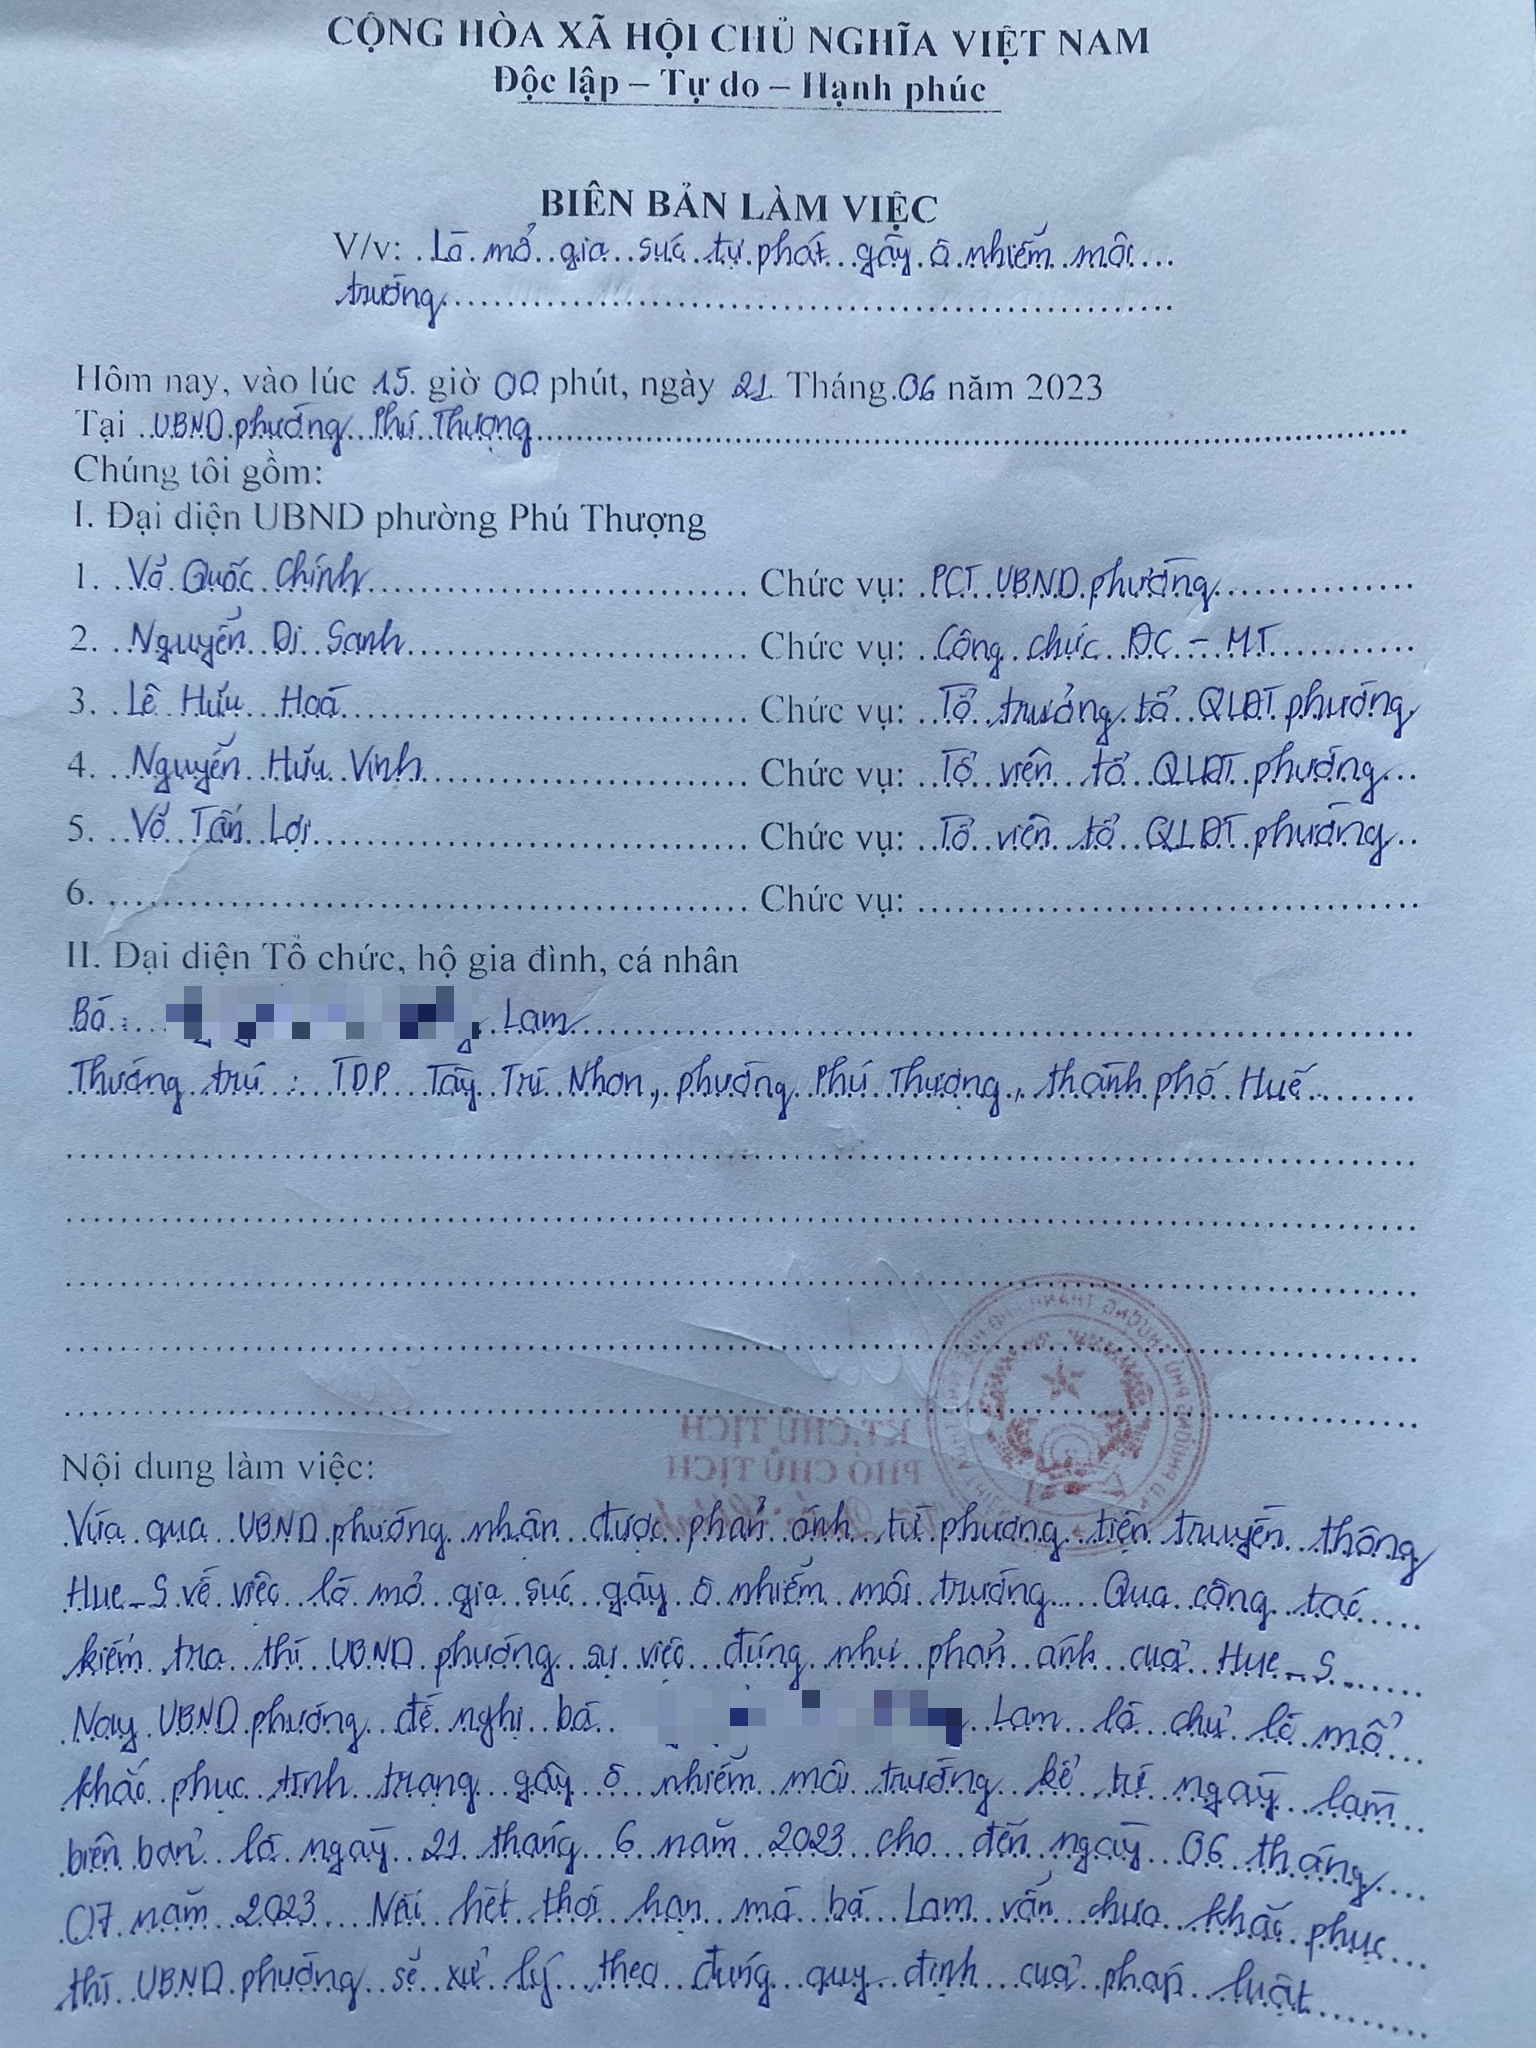 CỘNG HÒA XÃ HỘI CHỦ NGHĨA VIỆT NAM
Độc lập – Tự do – Hạnh phúc
BIÊN BẢN LÀM VIỆC
V/v: Lò mổ gia súc tự phát gây ô nhiễm môi
trường
Hôm nay, vào lúc 15 giờ 00 phút, ngày 21 Tháng 06 năm 2023
Tại UBND phường Phú Thượng
Chúng tôi gồm:
I. Đại diện UBND phường Phú Thượng
1. Võ Quốc Chính Chức vụ: PCT UBND phường
2. Nguyễn Di Sanh Chức vụ: Công chức ĐC - MT
3. Lê Hữu Hoá Chức vụ: Tổ trưởng tổ QLĐT phường
4. Nguyễn Hữu Vinh Chức vụ: Tổ viên tổ QLĐT phường
5. Võ Tấn Lợi Chức vụ: Tổ viên tổ QLĐT phường
6. Chức vụ:
II. Đại diện Tổ chức, hộ gia đình, cá nhân
Bà: Lam
Thường trú: TDP Tây Trì Nhơn, phường Phú Thượng, thành phố Huế
KT.CHỦ TỊCH
PHÓ CHỦ TỊCH
Nội dung làm việc:
Vừa qua UBND phường nhận được phản ánh từ phương tiện truyền thông
Hue-S về việc lò mổ gia súc gây ô nhiễm môi trường. Qua công tác
kiểm tra thì UBND phường sự việc đúng như phản ánh của Hue-S.
Nay UBND phường đề nghị bà Lam là chủ lò mổ
khắc phục tình trạng gây ô nhiễm môi trường kể từ ngày làm
biên bản là ngày 21 tháng 6 năm 2023 cho đến ngày 06 tháng
07 năm 2023. Nếu hết thời hạn mà bà Lam vẫn chưa khắc phục
thì UBND phường sẽ xử lý theo đúng quy định của pháp luật